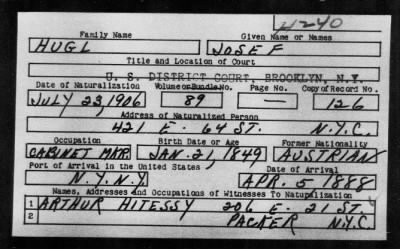 4240
Family Name Given Name or Names
HUGL JOSEF
Title and Location of Court
U. S. DISTRICT COURT, BROOKLYN, N.Y.
Date of Naturalization Volume or Bundle No. Page No. Copy of Record No.
JULY 23, 1906 89 — 126
Address of Naturalized Person
421 E. 64 ST. N.Y.C.
Occupation Birth Date or Age Former Nationality
CABINET MKR. JAN. 21, 1849 AUSTRIAN
Port of Arrival in the United States Date of Arrival
N.Y.N.Y. APR. 5, 1888
Names, Addresses and Occupations of Witnesses To Naturalization
1 ARTHUR HITESSY 206 E. 21 ST.
2 PACKER N.Y.C.